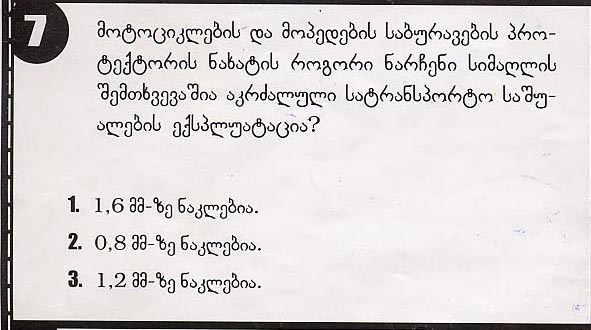 7
მოტოციკლების და მოპედების საბურავების პრო-
ტექტორის ნახატის როგორი ნარჩენი სიმაღლის
შემთხვევაშია აკრძალული სატრანსპორტო საშუ-
ალების ექსპლუატაცია?
1. 1,6 მმ-ზე ნაკლებია.
2. 0,8 მმ-ზე ნაკლებია.
3. 1,2 მმ-ზე ნაკლებია.